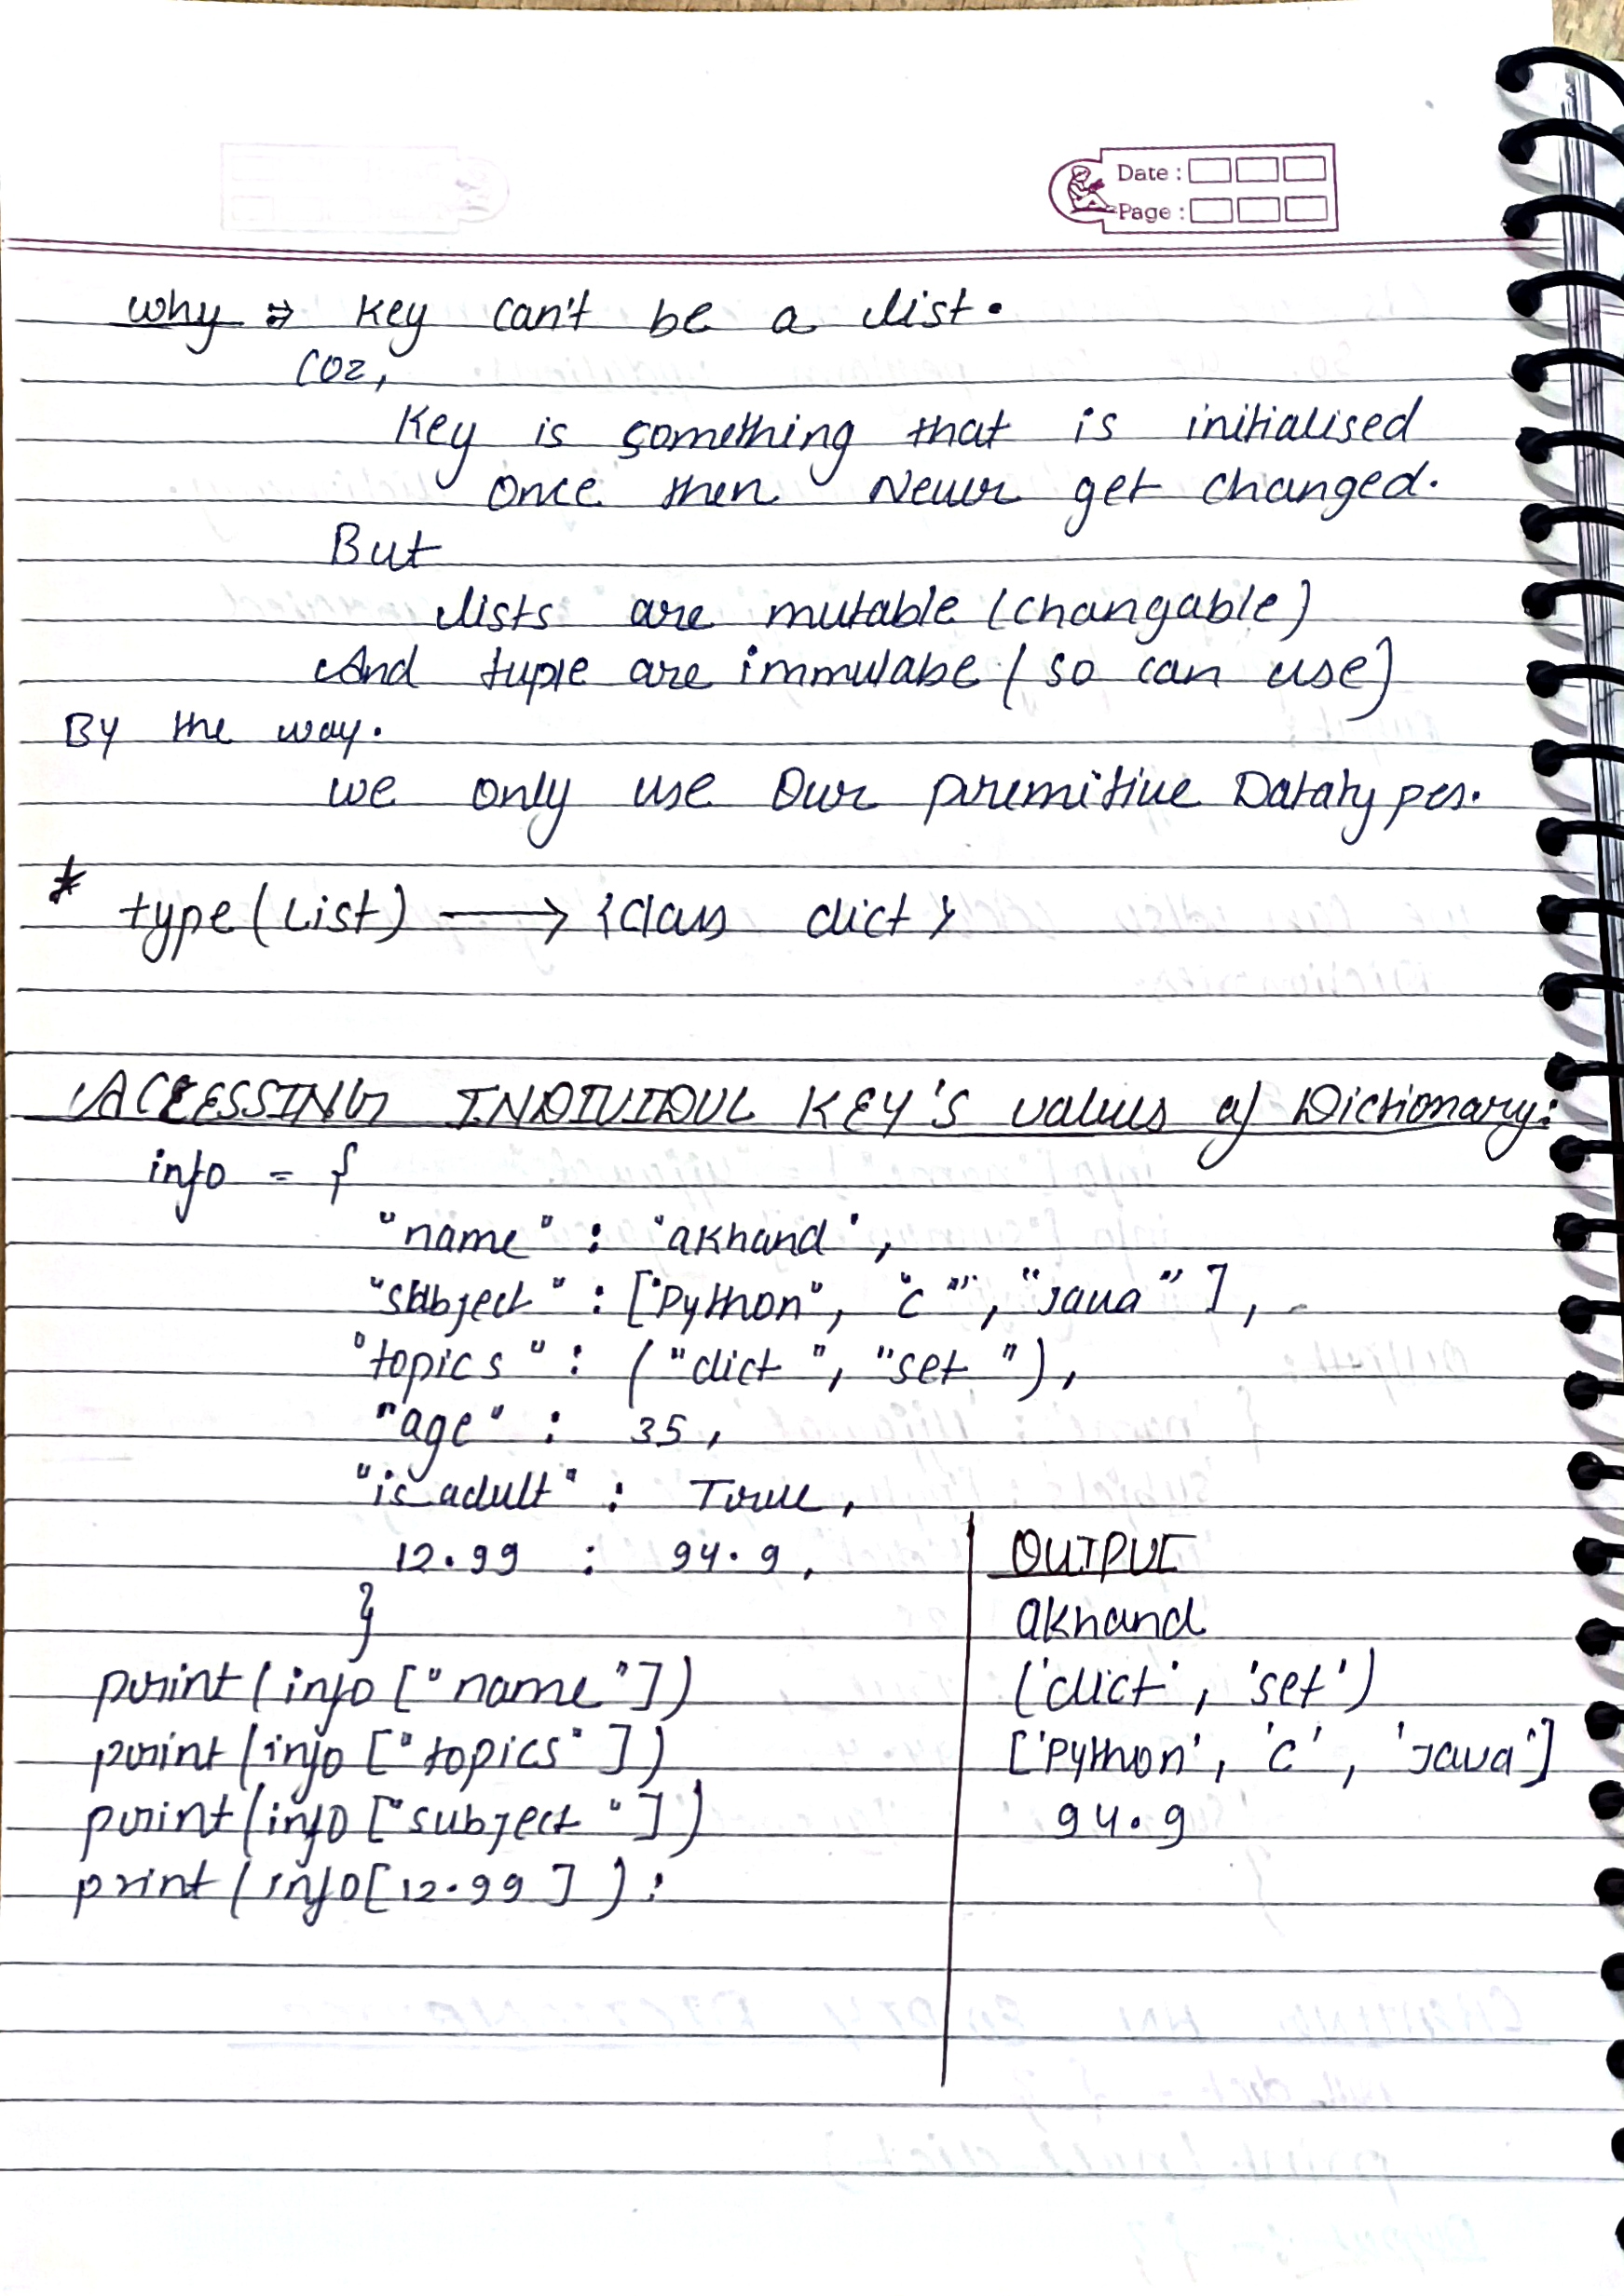 Date :
Page :
Why ⇒ Key can't be a list.
Coz,
Key is something that is initialised
Once then Never get changed.
But
lists are mutable (changable)
And tuple are immulabe (so can use)
By the way.
we only use Our premitive Datatypes.
* type(List) → {class dict}
ACCESSING INDIVIDUL KEY'S values of Dictionary:
info = {
"name" : "akhand",
"subject" : ["Python", "C", "Java"],
"topics" : ("dict", "set"),
"age" : 35,
"is adult" : True,
12.99 : 94.9,
}
print(info["name"])
print(info["topics"])
print(info["subject"])
print(info[12.99]):
OUTPUT
akhand
('dict', 'set')
['Python', 'C', 'Java']
94.9